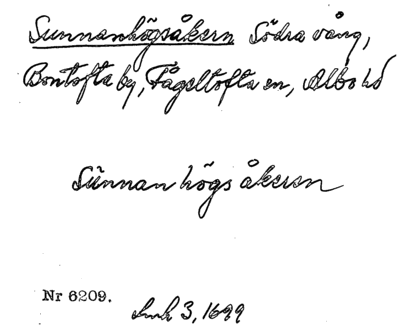 Sunnanhögsåkern Södra vång,
Bontofta by, Fågeltofta sn, Albo hd
Sunnan högs åkeren
Nr 6209.
Lmk 3, 1699